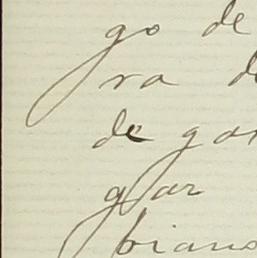 go de
ra d
de gar
gar
biano